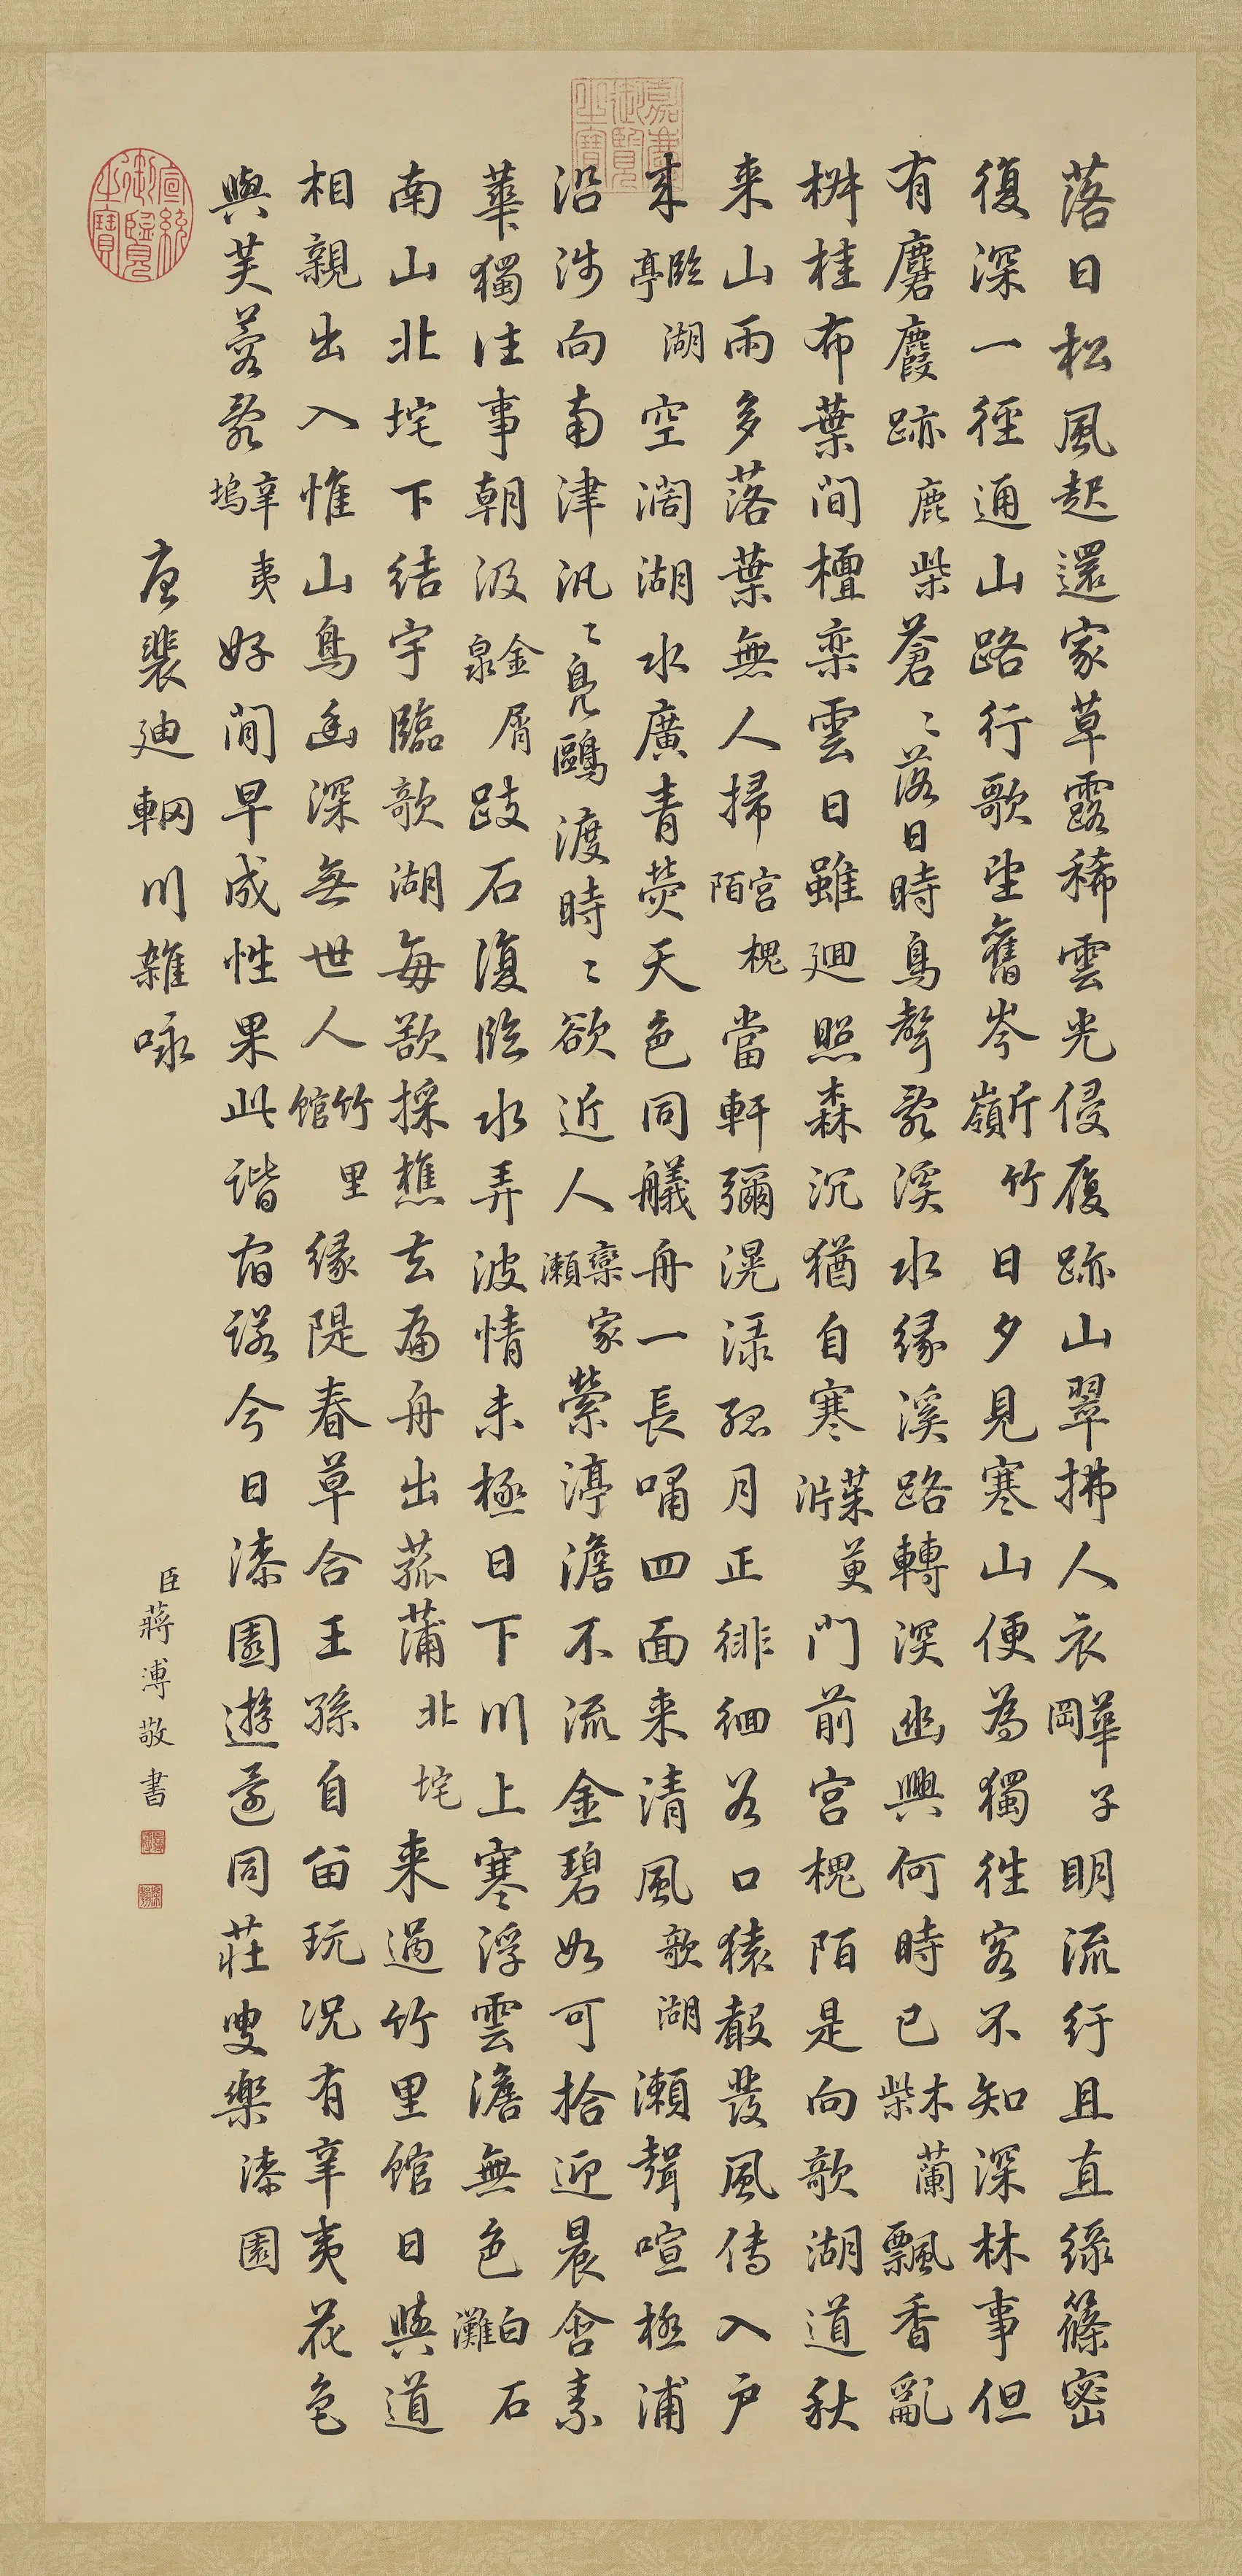 落日松風起還家草露稀雲光侵履跡山翠拂人衣華子岡明流紆且直綠篠密
復深一徑通山路行歌望舊岑斤竹嶺日夕見寒山便為獨往客不知深林事但
有麏麚跡鹿柴蒼〻落日時鳥聲亂溪水緣溪路轉深幽興何時已木蘭柴飄香亂
椒桂布葉間檀欒雲日雖迴照森沉猶自寒茱萸沜門前宮槐陌是向歌湖道秋
来山雨多落葉無人掃宮槐陌當軒彌滉漾孤月正徘徊谷口猿聲發風傳入戶
来臨湖亭空濶湖水廣青熒天色同艤舟一長嘯四面来清風歌湖瀨聲喧極浦
沿涉向南津汎〻鳧鷗渡時〻欲近人欒家瀨縈渟澹不流金碧如可拾迎晨含素
華獨往事朝汲金屑泉跂石復臨水弄波情未極日下川上寒浮雲澹無色白石灘
南山北垞下結宇臨歌湖每欲採樵去扁舟出菰蒲北垞来過竹里館日與道
相親出入惟山鳥幽深無世人竹里館緣隄春草合王孫自留玩況有辛夷花色
與芙蓉亂辛夷塢好閒早成性果此諧宿諾今日漆園遊還同莊叟樂漆園
唐裴迪輞川雜咏
臣蔣溥敬書
嘉慶御覽之寶
宣統御覽之寶